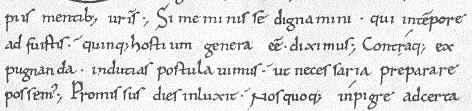 piis mentib; ur̄is;, Si meministis dignamini · qui in tēpore
ad fustis · quinq; hostium genera eē diximus;, Contraq; ex
pugnanda · inducias postulauimus · ut necessaria preparare
possem;, Promissus dies inluxit · Nosquoq; inpigre ad certa